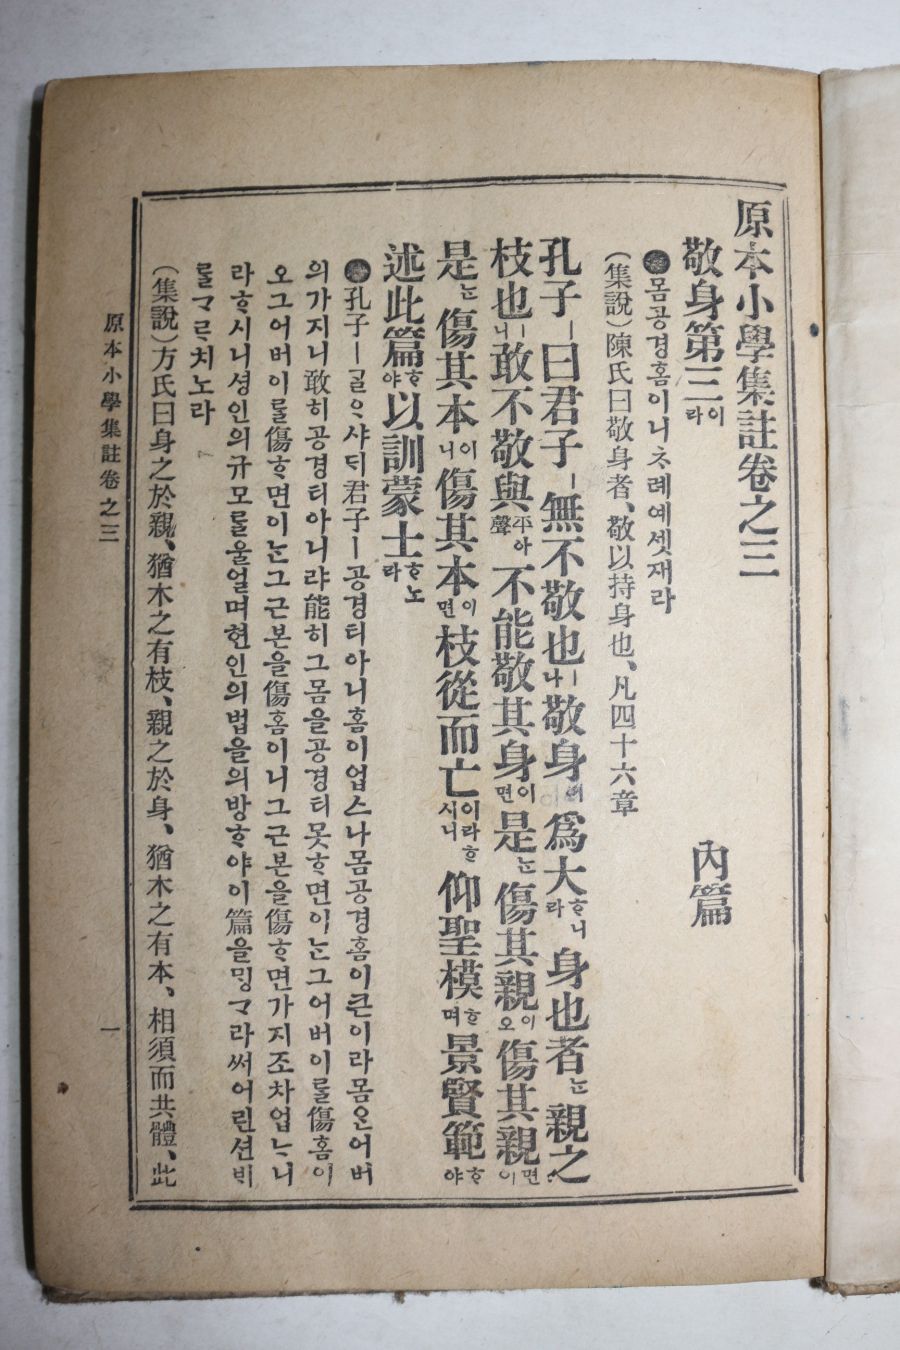 原本小學集註卷之三
敬身第三이라 內篇
●몸공경홈이니ᄎ례예셋재라
(集說)陳氏曰敬身者、敬以持身也、凡四十六章
孔子ㅣ曰君子ㅣ無不敬也ㅣ나敬身이爲大ᄒᆞ니라身也者ᄂᆞᆫ親之
枝也ㅣ니敢不敬與平聲아不能敬其身이면是ᄂᆞᆫ傷其親이오傷其親이면
是ᄂᆞᆫ傷其本이니傷其本이면枝從而亡이라ᄒᆞ시니仰聖模ᄒᆞ며景賢範ᄒᆞ야
述此篇ᄒᆞ야以訓蒙士ᄒᆞ노라
●孔子ㅣᄀᆞᆯᄋᆞ샤ᄃᆡ君子ㅣ공경티아니홈이업스나몸공경홈이큰이라몸ᄋᆞᆫ어버
의가지니敢히공경티아니랴能히그몸을공경티못ᄒᆞ면이ᄂᆞᆫ그어버이를傷홈이
오그어버이를傷ᄒᆞ면이ᄂᆞᆫ그근본을傷홈이니그근본을傷ᄒᆞ면가지조차업ᄂᆞ니
라ᄒᆞ시니셩인의규모를울얼며현인의법을의방ᄒᆞ야이篇을ᄆᆡᆼᄀᆞ라써어린션ᄇᆡ
를ᄀᆞᄅᆞ치노라
(集說)方氏曰身之於親、猶木之有枝、親之於身、猶木之有本、相須而共體、此
原本小學集註卷之三 一